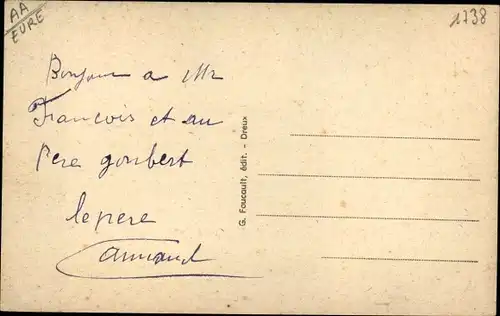 AA
EURE
1738
Bonjour a Mr
Francois et au
Pere goubert
le pere
Armand
G. Foucault, édit. - Dreux